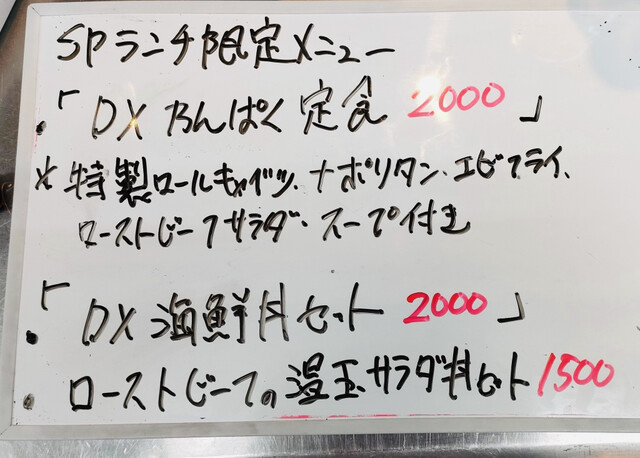 SPランチ限定メニュー
・「DXわんぱく定食 2000」
※特製ロールキャベツ、ナポリタン、エビフライ、
ローストビーフサラダ・スープ付き
・「DX海鮮丼セット 2000」
・ローストビーフの温玉サラダ丼セット 1500